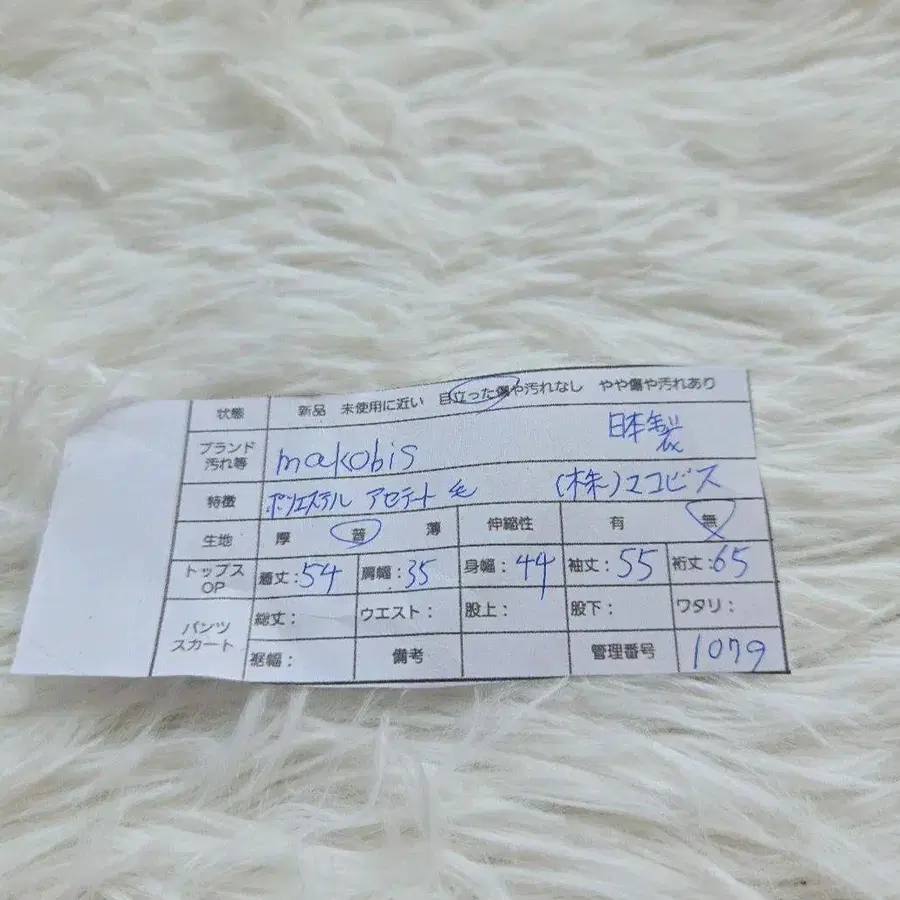 状態 新品 未使用に近い 目立った傷や汚れなし やや傷や汚れあり
ブランド 汚れ等 makobis 日本製
特徴 ポリエステル アセテート 毛 (株)マコビス
生地 厚 普 薄 伸縮性 有 無
トップス OP 着丈:54 肩幅:35 身幅:44 袖丈:55 裄丈:65
パンツ スカート 総丈: ウエスト: 股上: 股下: ワタリ:
裾幅: 備考 管理番号 1079